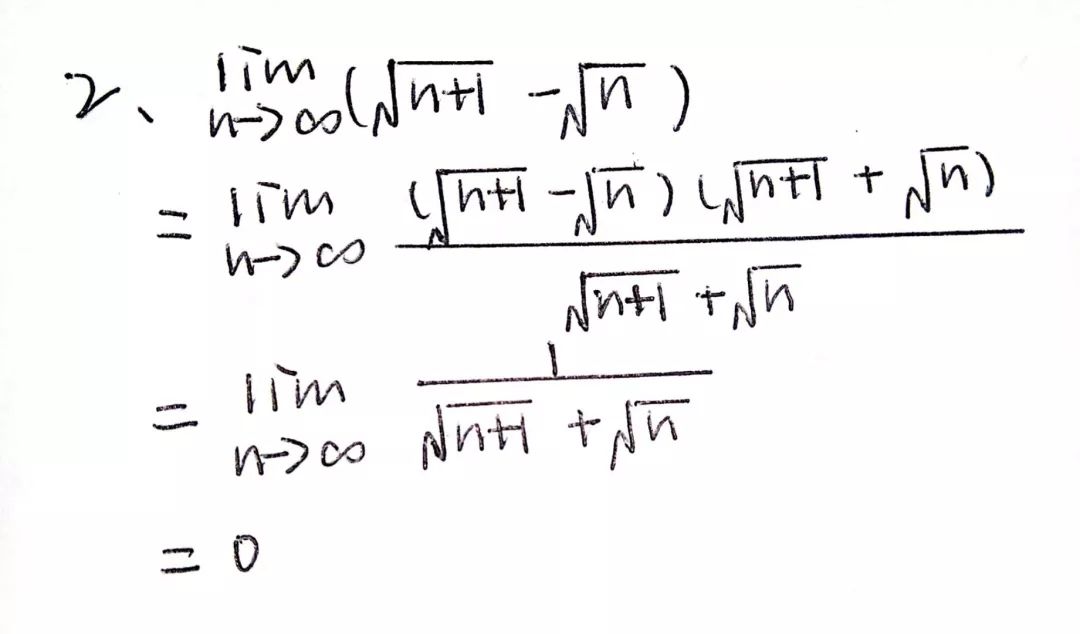 2、lim n→∞ (√(n+1) - √n)
= lim n→∞ ((√(n+1) - √n)(√(n+1) + √n)) / (√(n+1) + √n)
= lim n→∞ 1 / (√(n+1) + √n)
= 0